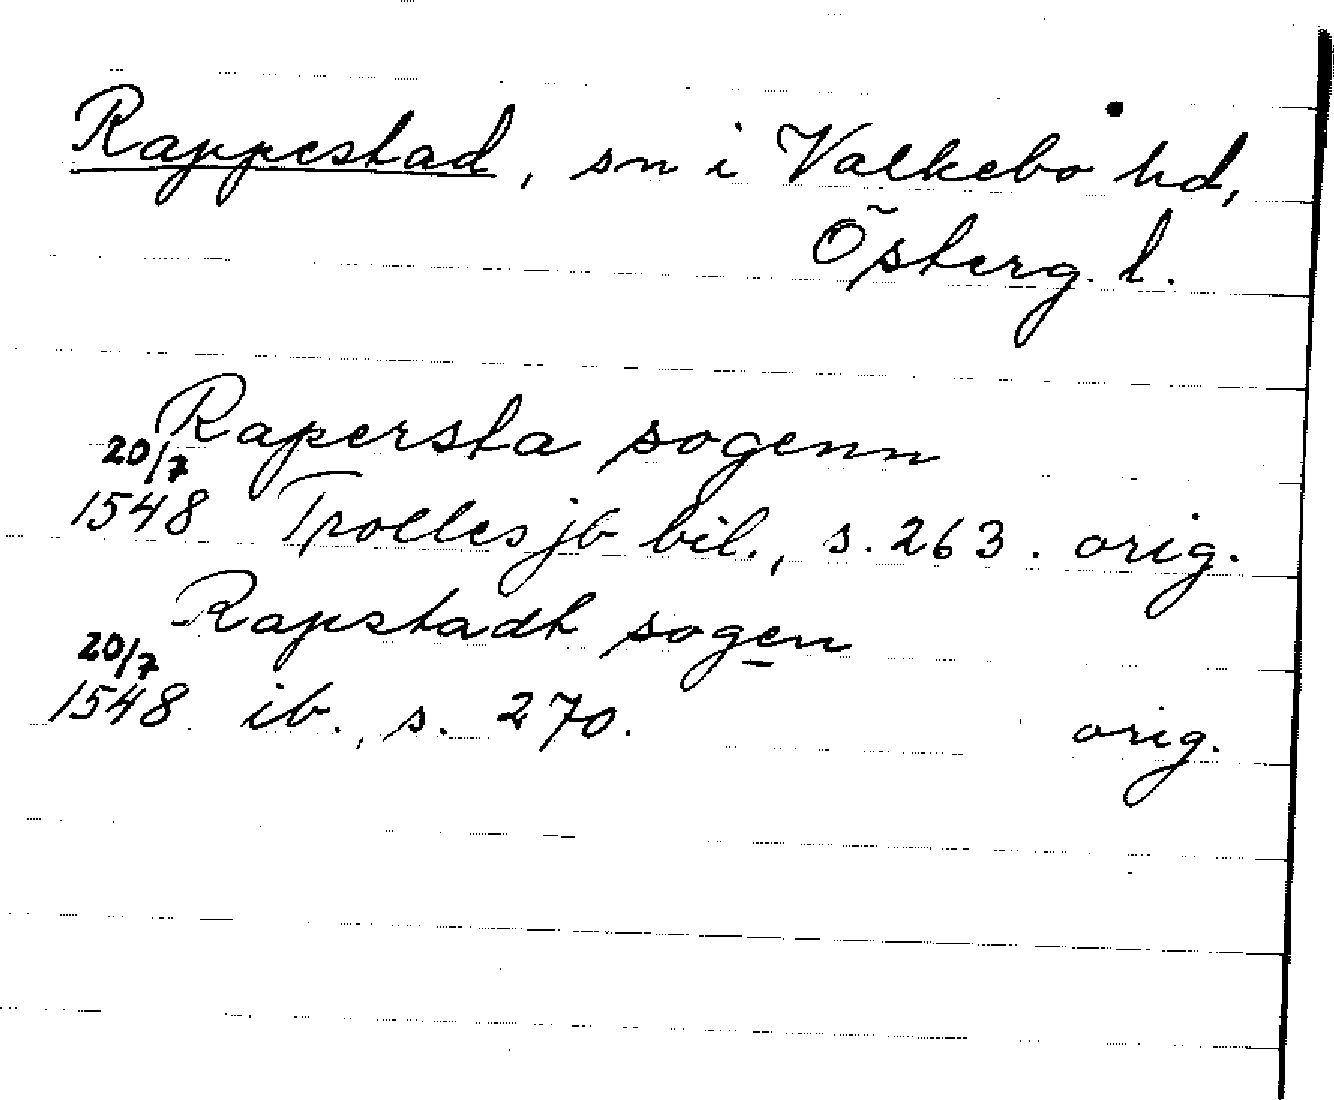 Rappestad, sn i Valkebo hd,
Österg. l.
Rapersta sogenn
20/7
1548 Trolles jb bil., s. 263. orig.
Rapstadt sogen
20/7
1548 ib., s. 270. orig.